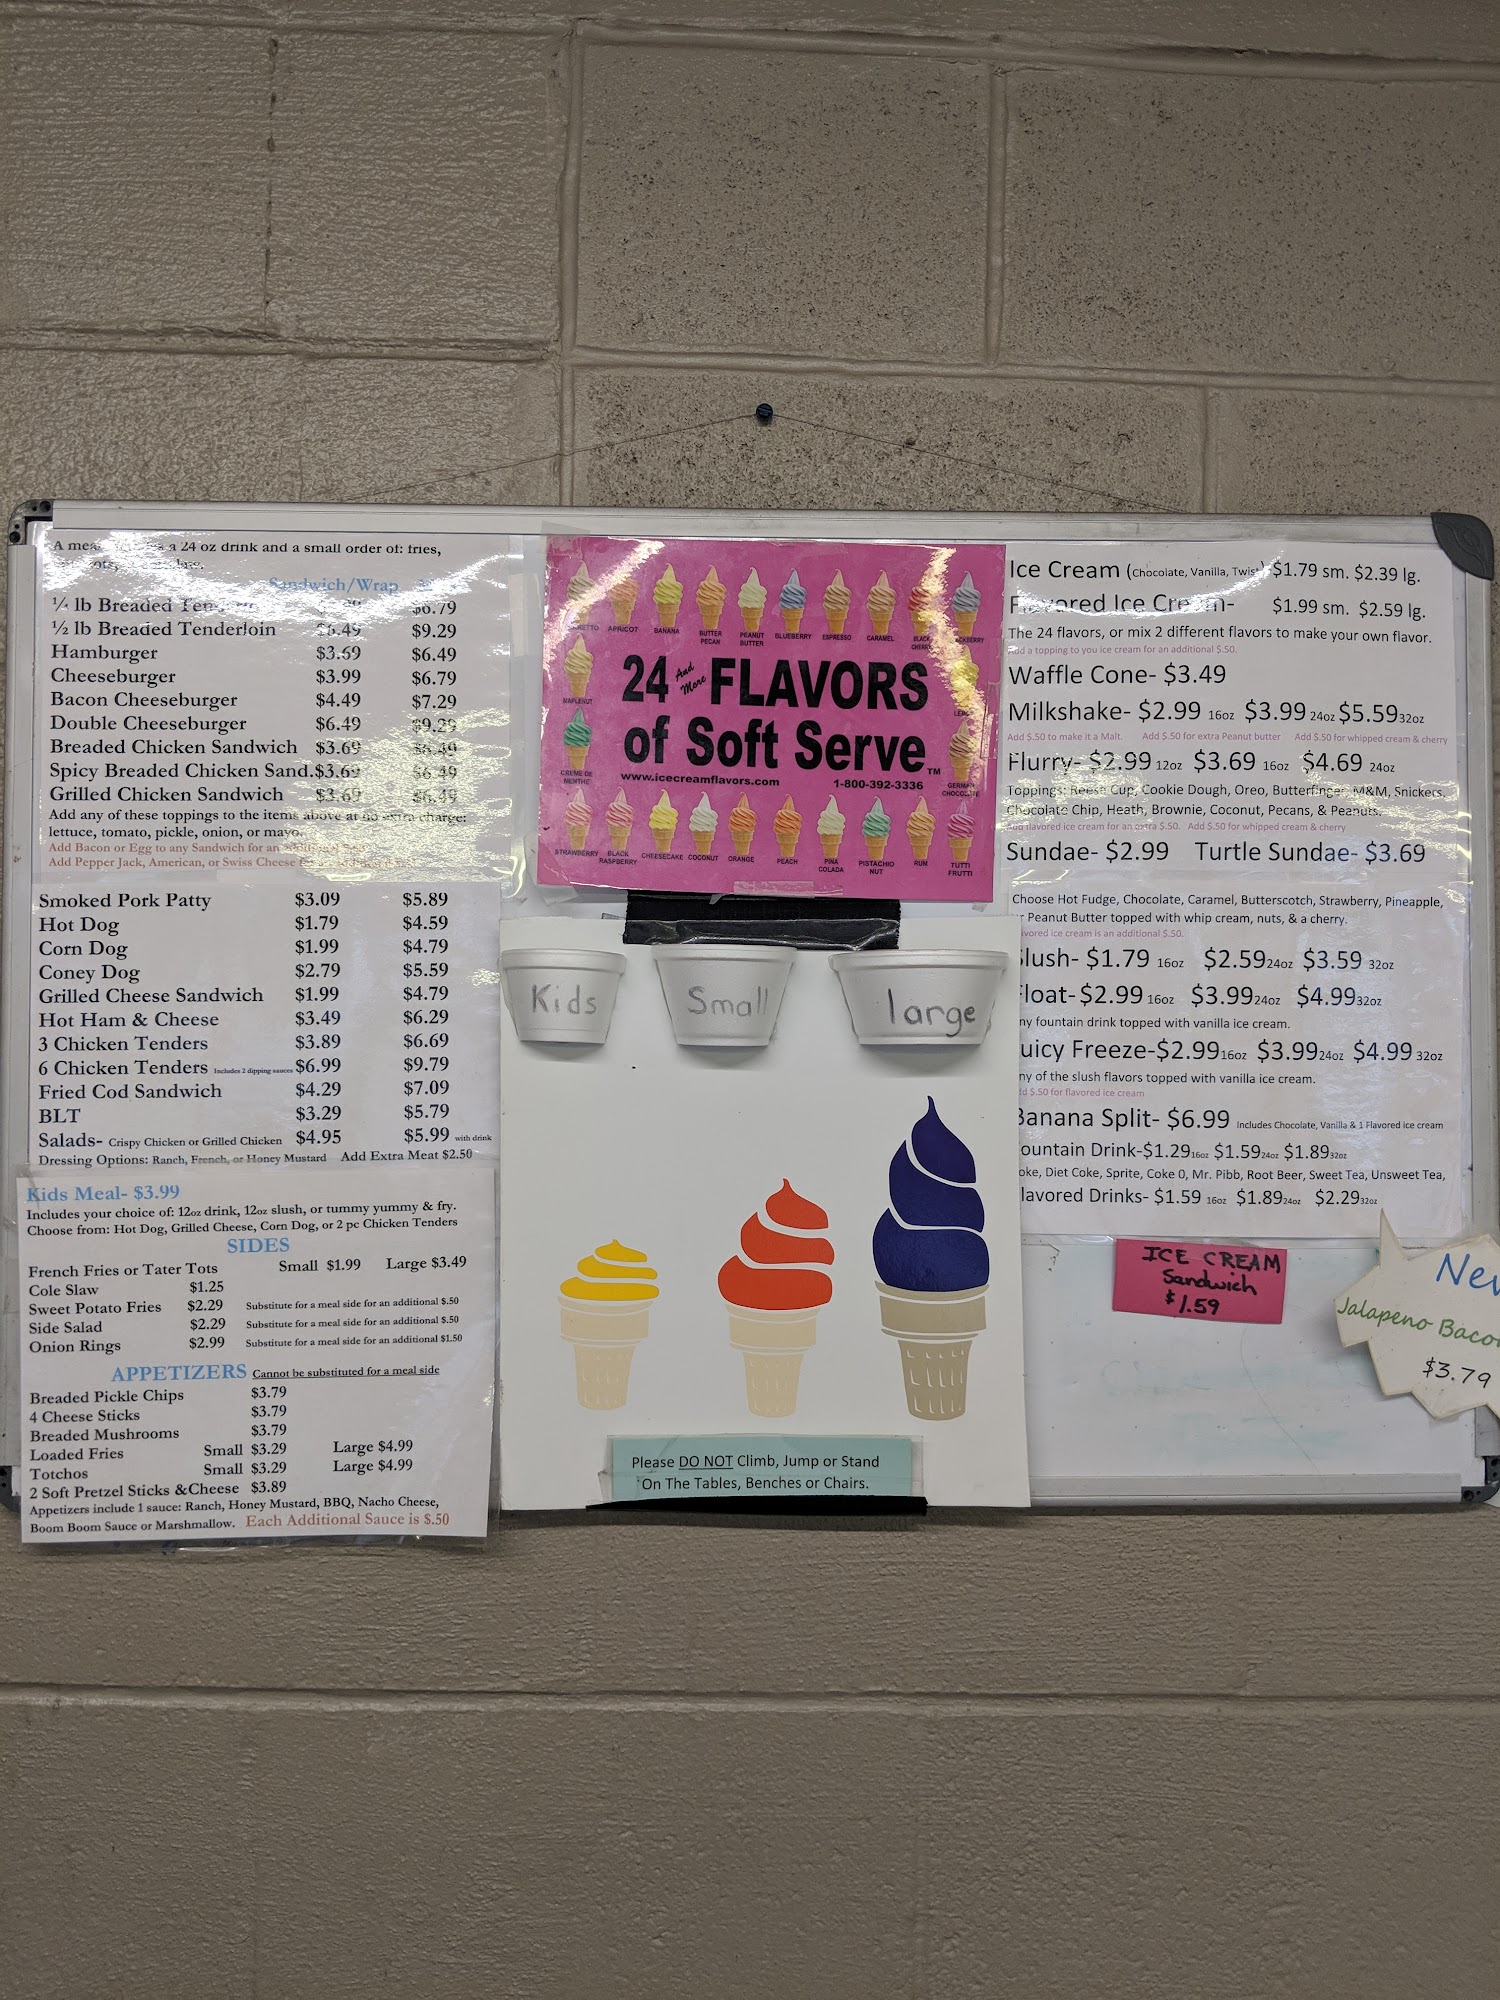 A 24 oz drink and a small order of: fries,
Sandwich/Wrap
¼ lb Breaded $6.79
½ lb Breaded Tenderloin $6.49 $9.29
Hamburger $3.69 $6.49
Cheeseburger $3.99 $6.79
Bacon Cheeseburger $4.49 $7.29
Double Cheeseburger $6.49 $9.29
Breaded Chicken Sandwich $3.69 $6.49
Spicy Breaded Chicken Sand.$3.69 $6.49
Grilled Chicken Sandwich $3.69 $6.49
Add any of these toppings to the items above at no extra charge:
lettuce, tomato, pickle, onion, or mayo.
Add Bacon or Egg to any Sandwich for an
Add Pepper Jack, American, or Swiss Cheese
Smoked Pork Patty $3.09 $5.89
Hot Dog $1.79 $4.59
Corn Dog $1.99 $4.79
Coney Dog $2.79 $5.59
Grilled Cheese Sandwich $1.99 $4.79
Hot Ham & Cheese $3.49 $6.29
3 Chicken Tenders $3.89 $6.69
6 Chicken Tenders Includes 2 dipping sauces $6.99 $9.79
Fried Cod Sandwich $4.29 $7.09
BLT $3.29 $5.79
Salads- Crispy Chicken or Grilled Chicken $4.95 $5.99 with drink
Dressing Options: Ranch, French, or Honey Mustard Add Extra Meat $2.50
Kids Meal- $3.99
Includes your choice of: 12oz drink, 12oz slush, or tummy yummy & fry.
Choose from: Hot Dog, Grilled Cheese, Corn Dog, or 2 pc Chicken Tenders
SIDES
French Fries or Tater Tots Small $1.99 Large $3.49
Cole Slaw $1.25
Sweet Potato Fries $2.29 Substitute for a meal side for an additional $.50
Side Salad $2.29 Substitute for a meal side for an additional $.50
Onion Rings $2.99 Substitute for a meal side for an additional $1.50
APPETIZERS Cannot be substituted for a meal side
Breaded Pickle Chips $3.79
4 Cheese Sticks $3.79
Breaded Mushrooms $3.79
Loaded Fries Small $3.29 Large $4.99
Totchos Small $3.29 Large $4.99
2 Soft Pretzel Sticks &Cheese $3.89
Appetizers include 1 sauce: Ranch, Honey Mustard, BBQ, Nacho Cheese,
Boom Boom Sauce or Marshmallow. Each Additional Sauce is $.50
APRICOT BANANA BUTTER PECAN PEANUT BUTTER BLUEBERRY ESPRESSO CARAMEL BLACK CHERRY
MAPLENUT
24 And More FLAVORS
of Soft Serve™
CREME DE MENTHE
www.icecreamflavors.com 1-800-392-3336
GERMAN CHOCOLATE
STRAWBERRY BLACK RASPBERRY CHEESECAKE COCONUT ORANGE PEACH PINA COLADA PISTACHIO NUT RUM TUTTI FRUTTI
Kids Small large
Please DO NOT Climb, Jump or Stand
On The Tables, Benches or Chairs.
Ice Cream (Chocolate, Vanilla, Twist) $1.79 sm. $2.39 lg.
Flavored Ice Cream- $1.99 sm. $2.59 lg.
The 24 flavors, or mix 2 different flavors to make your own flavor.
Add a topping to you ice cream for an additional $.50.
Waffle Cone- $3.49
Milkshake- $2.99 16oz $3.99 24oz $5.59 32oz
Add $.50 to make it a Malt. Add $.50 for extra Peanut butter Add $.50 for whipped cream & cherry
Flurry- $2.99 12oz $3.69 16oz $4.69 24oz
Toppings: Reese Cup, Cookie Dough, Oreo, Butterfinger, M&M, Snickers,
Chocolate Chip, Heath, Brownie, Coconut, Pecans, & Peanuts.
Add flavored ice cream for an extra $.50. Add $.50 for whipped cream & cherry
Sundae- $2.99 Turtle Sundae- $3.69
Choose Hot Fudge, Chocolate, Caramel, Butterscotch, Strawberry, Pineapple,
or Peanut Butter topped with whip cream, nuts, & a cherry.
avored ice cream is an additional $.50.
lush- $1.79 16oz $2.59 24oz $3.59 32oz
Float- $2.99 16oz $3.99 24oz $4.99 32oz
ny fountain drink topped with vanilla ice cream.
uicy Freeze-$2.99 16oz $3.99 24oz $4.99 32oz
ny of the slush flavors topped with vanilla ice cream.
d $.50 for flavored ice cream
Banana Split- $6.99 Includes Chocolate, Vanilla & 1 Flavored ice cream
ountain Drink-$1.29 16oz $1.59 24oz $1.89 32oz
oke, Diet Coke, Sprite, Coke 0, Mr. Pibb, Root Beer, Sweet Tea, Unsweet Tea,
lavored Drinks- $1.59 16oz $1.89 24oz $2.29 32oz
ICE CREAM
Sandwich
$1.59
New
Jalapeno Bacon
$3.79